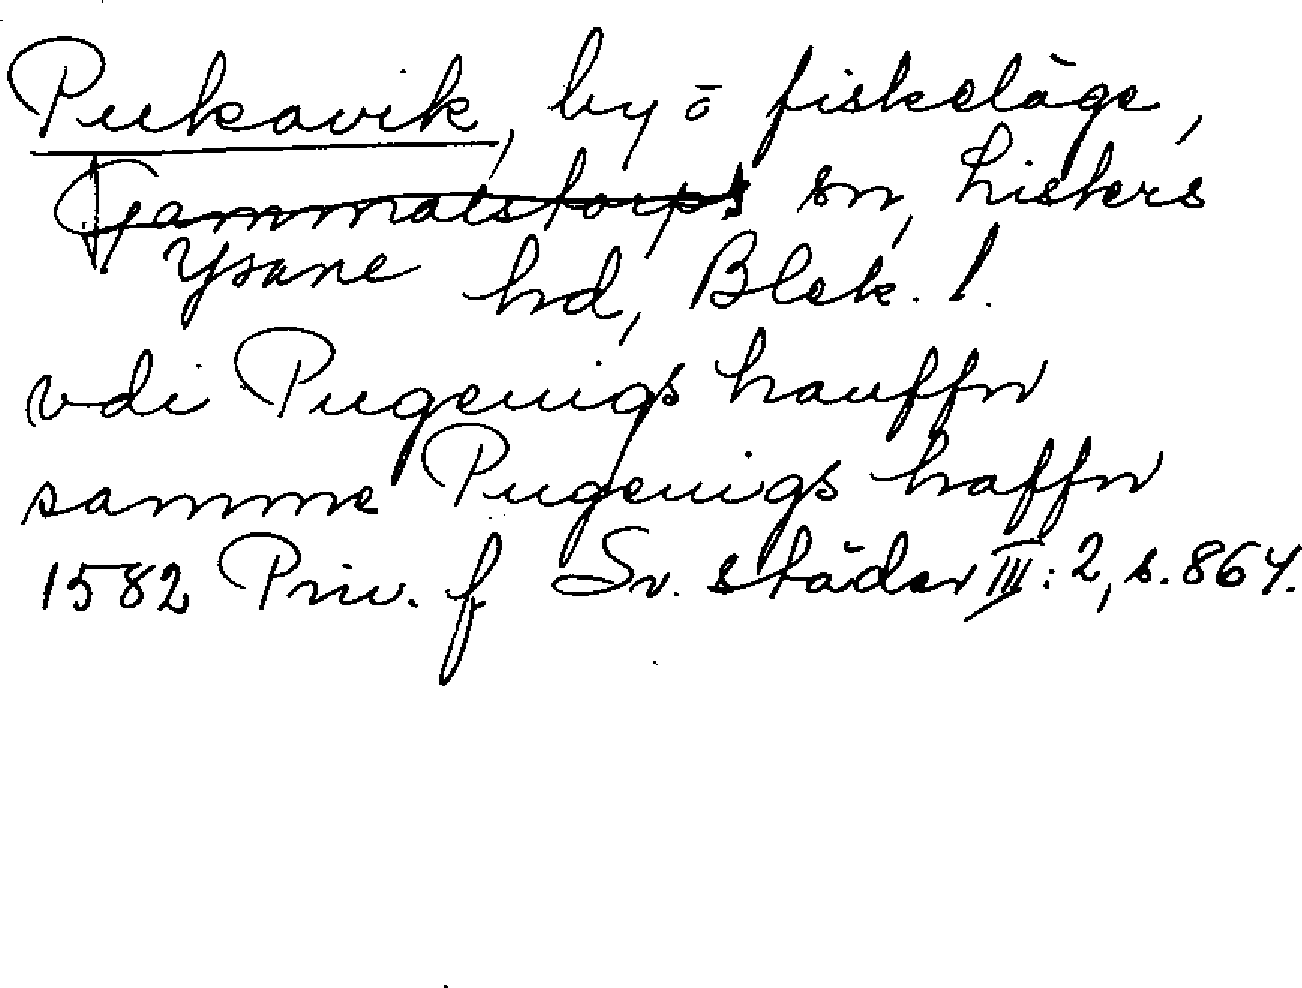 Pukavik, by o fiskeläge,
Gammalstorps sn, Listers
Ysane hd, Blek. l.
vdi Pugeuigs hauffn
samme Pugeuigs haffn
1582 Priv. f Sv. städer III:2, s. 864.